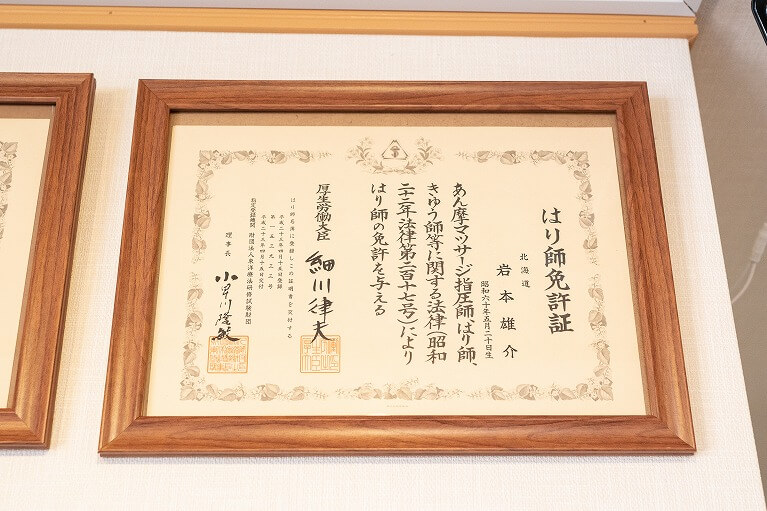 はり師免許証
北海道
岩本雄介
昭和六十年五月二十日生
あん摩マツサージ指圧師、はり師、
きゆう師等に関する法律（昭和
二十二年法律第二百十七号）により
はり師の免許を与える
厚生労働大臣 細川律夫
はり師名簿に登録しこの証明書を交付する
平成二十三年四月十五日登録
第一五三九二二号
平成二十三年四月十五日交付
指定登録機関 財団法人東洋療法研修試験財団
理事長 小早川隆敏